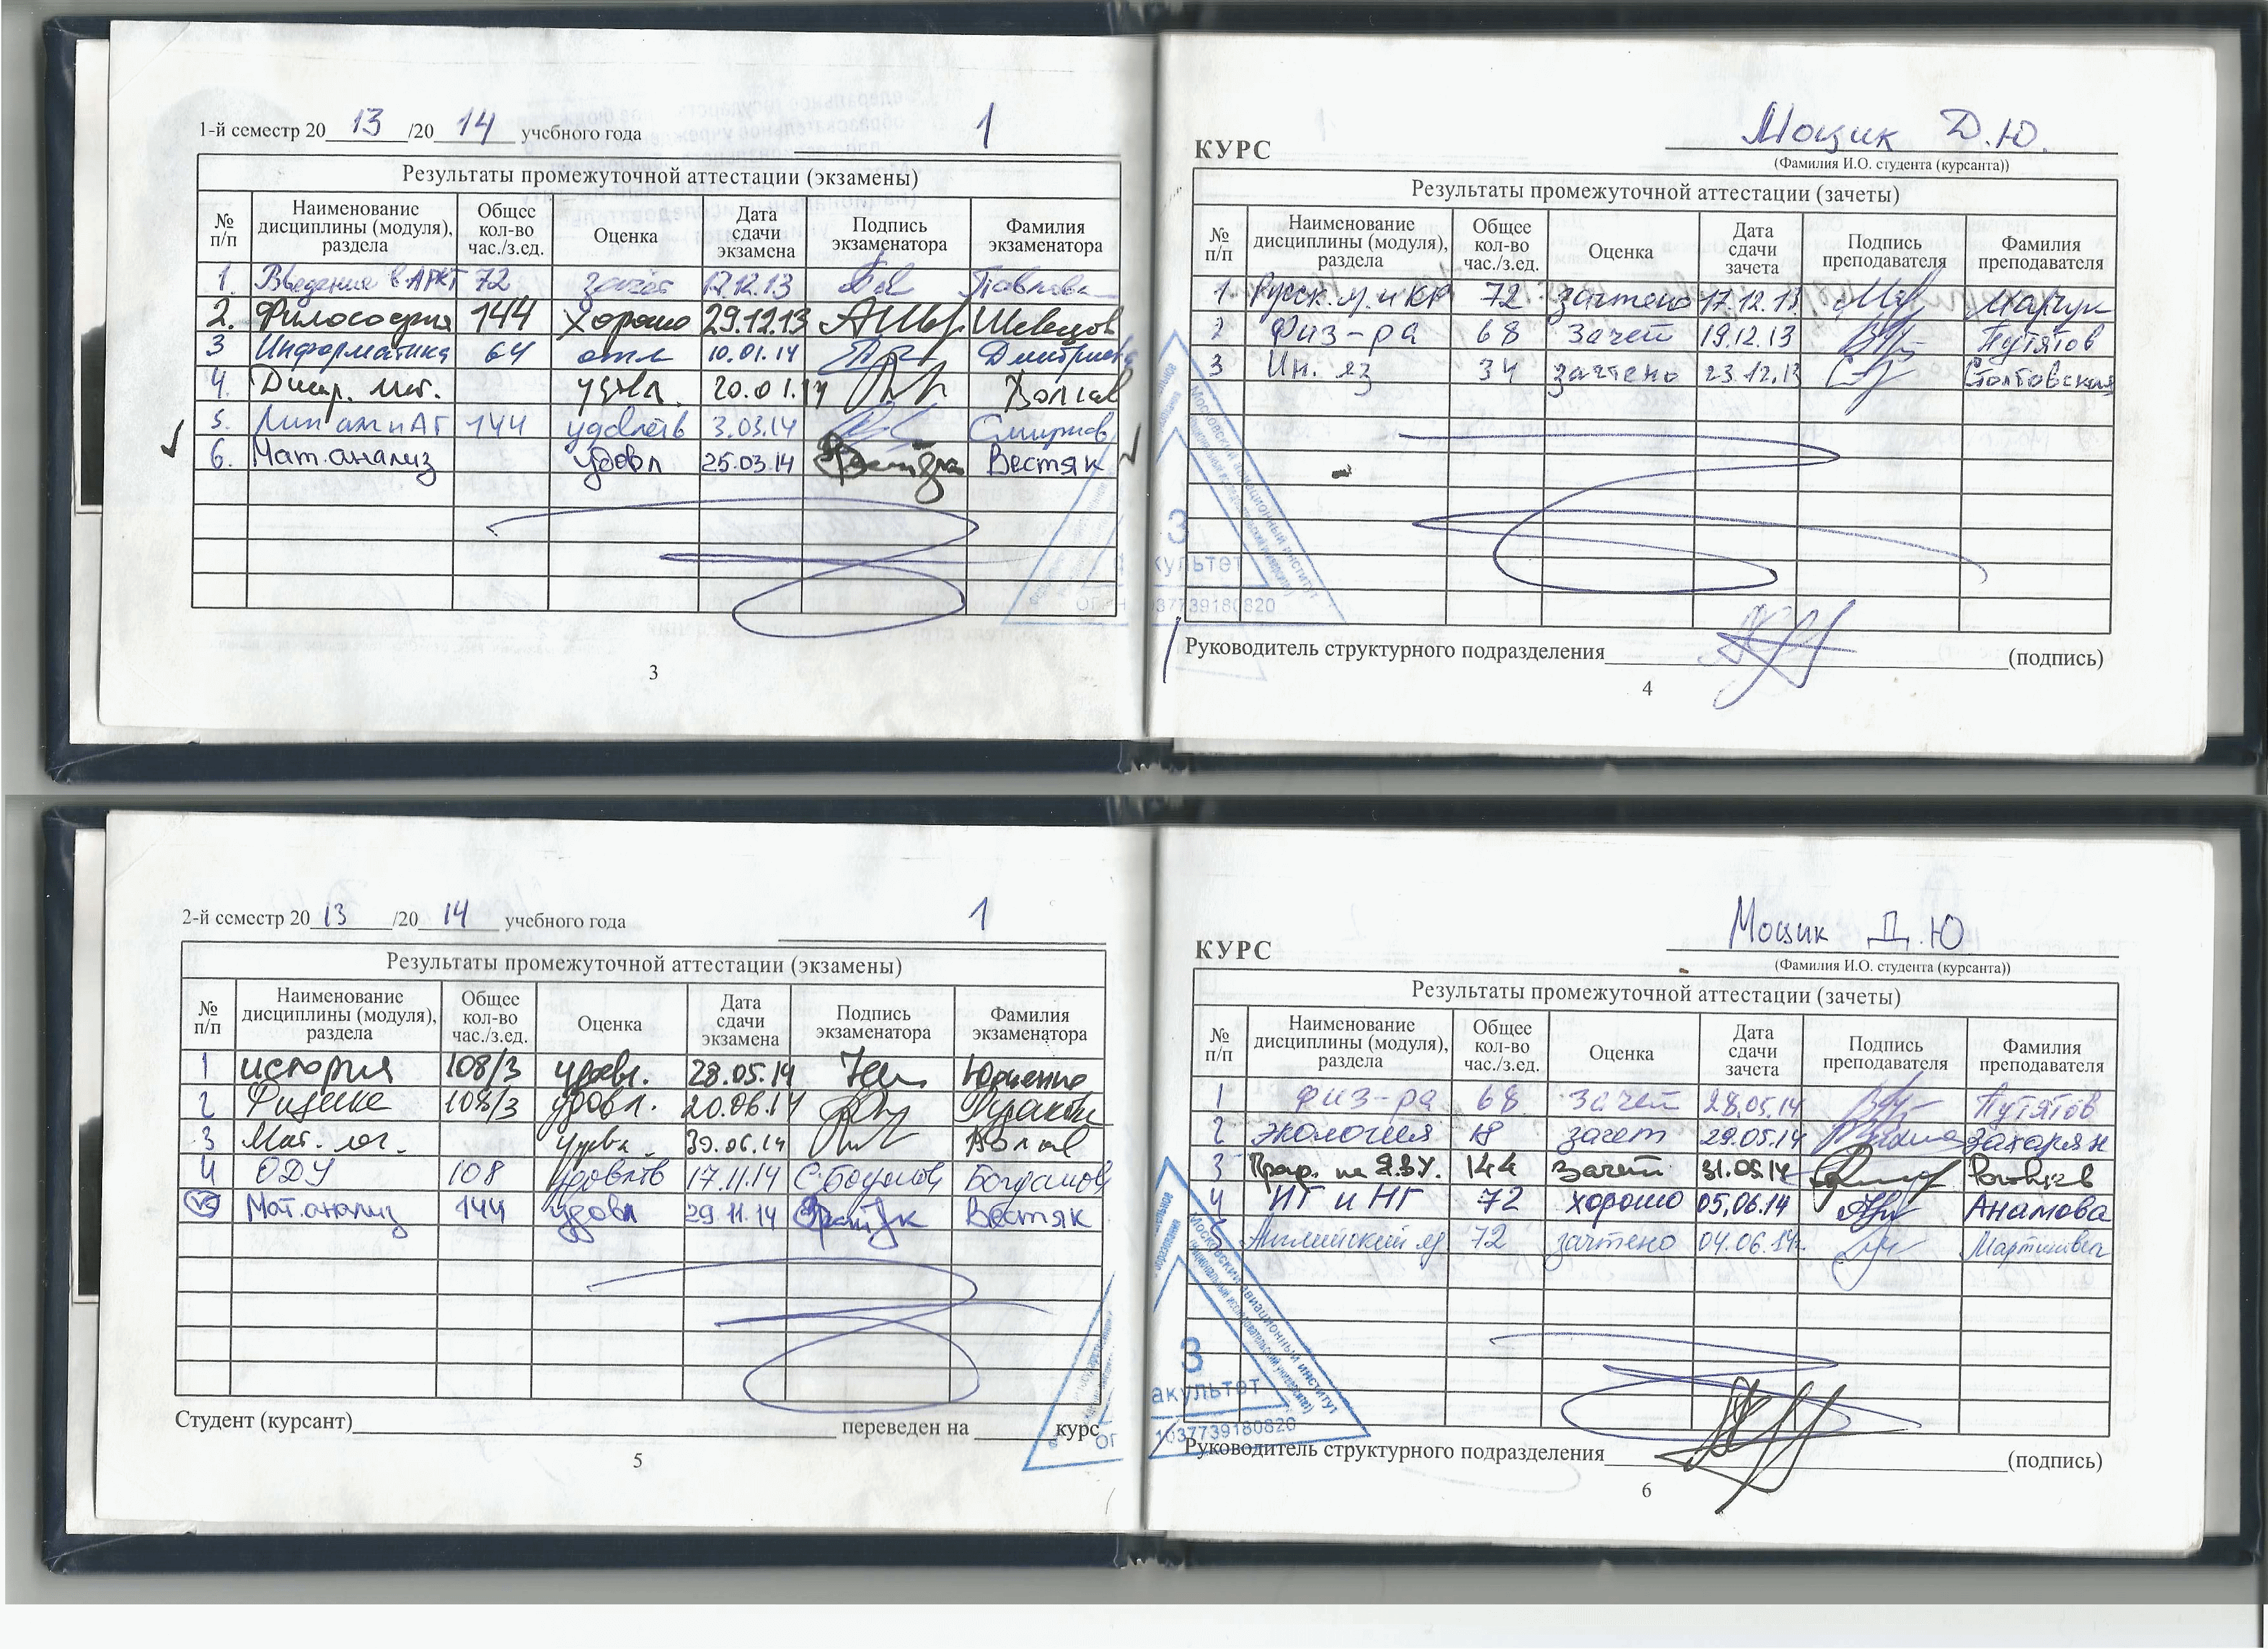 1-й семестр 20 13 /20 14 учебного года 1
Результаты промежуточной аттестации (экзамены)
№ п/п Наименование дисциплины (модуля), раздела Общее кол-во час./з.ед. Оценка Дата сдачи экзамена Подпись экзаменатора Фамилия экзаменатора
1. Введение в 72 зачёт 12.13 Павлова
2. Философия 144 хорошо 29.12.13 Швецов
3 Информатика 64 отл 10.01.14
4. удовл. 20.01.14
5. Лин ал и АГ 144 удовлетв 3.03.14 Смирнов
6. Мат.анализ удовл 25.03.14 Вестяк
3
КУРС Мощик Д.Ю.
(Фамилия И.О. студента (курсанта))
Результаты промежуточной аттестации (зачеты)
№ п/п Наименование дисциплины (модуля), раздела Общее кол-во час./з.ед. Оценка Дата сдачи зачета Подпись преподавателя Фамилия преподавателя
1. Русск. я. и КР 72 зачтено 17.12.13 Марчук
2 Физ-ра 68 зачет 19.12.13 Путятов
3 Ин. яз 34 зачтено 23.12.13 Столтовская
Московский авиационный институт
3
факультет
ОГРН 1037739180820
Руководитель структурного подразделения (подпись)
4
2-й семестр 20 13 /20 14 учебного года 1
Результаты промежуточной аттестации (экзамены)
№ п/п Наименование дисциплины (модуля), раздела Общее кол-во час./з.ед. Оценка Дата сдачи экзамена Подпись экзаменатора Фамилия экзаменатора
1 история 108/3 удовл. 28.05.14 Юрченко
2 Физика 108/3 удовл. 20.06.14
3 Мат. лог. 30.06.14
4 ОДУ 108 удовлтв 17.11.14 С.Богданов Богданов
Мат.анализ 144 удовл 29.11.14 Вестяк
Студент (курсант) переведен на курс
5
КУРС Мощик Д.Ю
(Фамилия И.О. студента (курсанта))
Результаты промежуточной аттестации (зачеты)
№ п/п Наименование дисциплины (модуля), раздела Общее кол-во час./з.ед. Оценка Дата сдачи зачета Подпись преподавателя Фамилия преподавателя
1 физ-ра 68 зачет 28.05.14 Путятов
2 экология 18 зачет 29.05.14 Захарян
3 Прогр. на ЯВУ. 144 зачет 31.05.14
4 ИГ и НГ 72 хорошо 05.06.14 Анамова
5 Английский яз 72 зачтено 04.06.14г. Мартишова
Московский авиационный институт
3
факультет
1037739180820
Руководитель структурного подразделения (подпись)
6